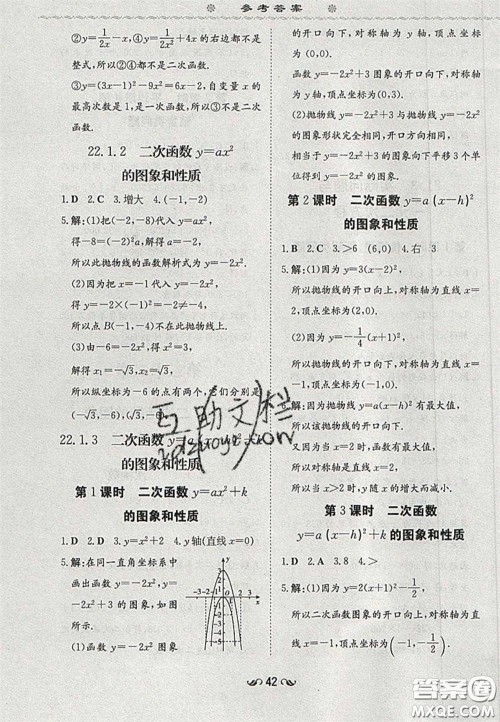 参考答案
②y=1/2x-x,④y=1/2x²+4x的右边都不是
整式,所以②④都不是二次函数.
③y=(x-3)²-9x²... 
③y=(3x-1)²-9x²=6x-2,自变量x的
最高次数是1,所以③不是二次函数.
22.1.2 二次函数y=ax²
的图象和性质
1.D 2.1.2 3.增大 4.(-1,-2)
5.解:(1)把(-2,-8)代入y=ax²,
得-8=(-2)²a,解得a=-2,
所以此抛物线的函数解析式为y=-2x².
(2)因为当x=-1时,
得y=-2×(-1)²=-2≠-4,
所以点B(-1,-4)不在此抛物线上.
(3)由-6=-2x²,得x²=3,
解得x₁=-√3,x₂=√3.
所以纵坐标为-6的点有两个,它们分别是
(-√3,-6),(√3,-6).
22.1.3 二次函数
的图象和性质
第1课时 二次函数y=ax²+k
的图象和性质
1.D 2.D 3.y=x²+2 4.y轴(直线x=0)
5.解:在同一直角坐标系中
画出函数y=-2x²,y=
-2x²+3的图象如图
所示.
(1)函数y=-2x²图象
的开口向下,对称轴为y轴,顶点坐
标为(0,0).
函数y=-2x²+3图象的开口向下,对
称轴为y轴,顶点坐标为(0,3).
(2)抛物线y=-2x²+3与抛物线y=-2x²
的图象形状完全相同,开口方向相同,
函数y=-2x²+3图象向下平移3个单
位得到y=-2x²的图象.
第2课时 二次函数y=a(x-h)²
的图象和性质
1.D 2.C 3.>6 (6,0) 4.右 3
5.解:(1)因为y=3(x-2)²,
所以抛物线的开口向上,对称轴为直线
x=2,顶点坐标为(2,0).
(2)因为y=-1/4(x+1)²,
所以抛物线的开口向下,对称轴为直线
x=-1,顶点坐标为(-1,0).
6.解:因为抛物线y=a(x+h)²有最大值,
所以抛物线的开口向下,
因为当x=-2时,函数有最大值,
所以对称轴为直线x=-2,
所以当x>-2时,y随x的增大而减小.
第3课时 二次函数
y=a(x-h)²+k的图象和性质
1.D 2.A 3.8 4.>
5.解:(1)因为y=2(x+1)²-1/2,
所以二次函数图象的开口向上,对称轴为
x=-1,顶点坐标为(-1,-1/2).
42
互助文栏
答案圈
MXQE.COM